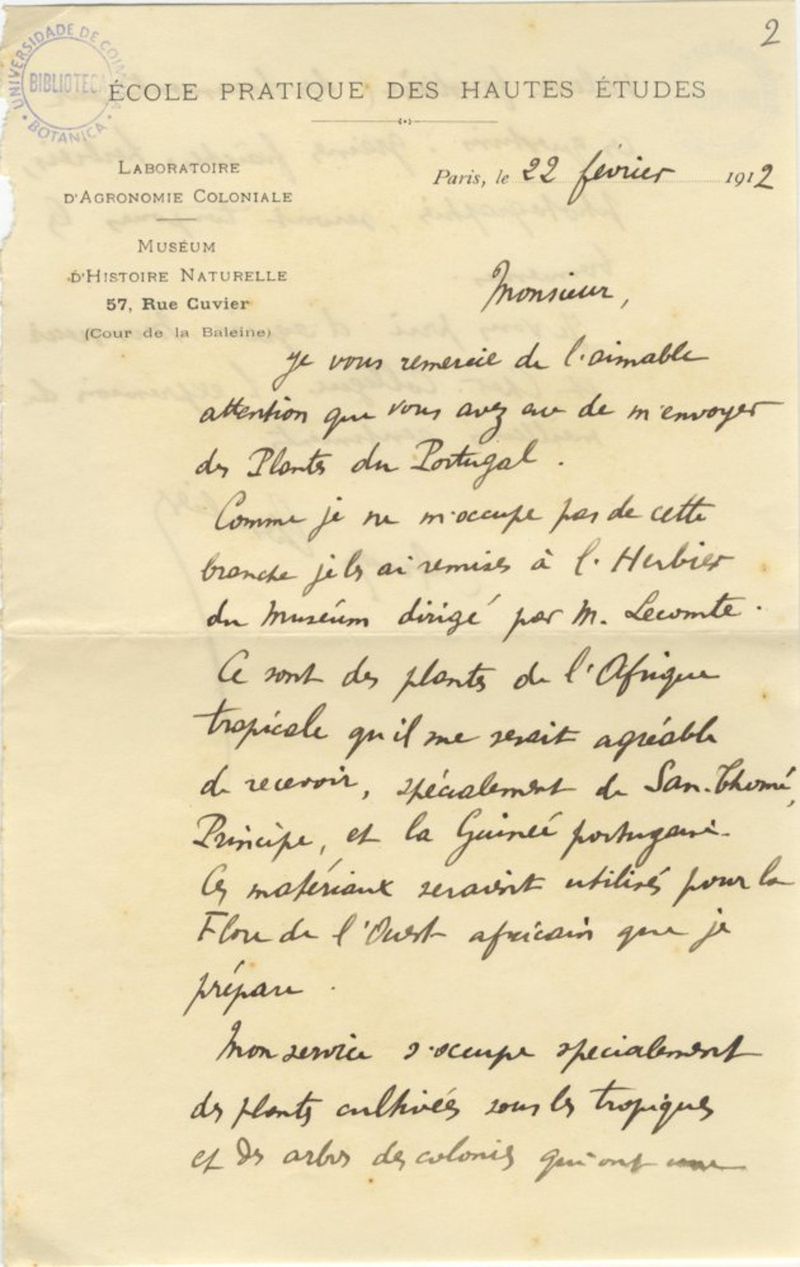 2
UNIVERSIDADE DE COIM
BIBLIOTECA
BOTANICA
ÉCOLE PRATIQUE DES HAUTES ÉTUDES
LABORATOIRE
D'AGRONOMIE COLONIALE
MUSÉUM
D'HISTOIRE NATURELLE
57, Rue Cuvier
(Cour de la Baleine)
Paris, le 22 février 1912
Monsieur,
Je vous remercie de l'aimable
attention que vous avez eue de m'envoyer
des Plantes du Portugal.
Comme je ne m'occupe pas de cette
branche je les ai remises à l'Herbier
du Muséum dirigé par M. Lecomte.
Ce sont des plantes de l'Afrique
tropicale qu'il me serait agréable
de recevoir, spécialement de San-Thomé,
Principe, et la Guinée portugaise.
Ces matériaux seraient utilisés pour la
Flore de l'Ouest africain que je
prépare.
Mon service s'occupe spécialement
des plantes cultivées sous les tropiques
et des arbres des colonies qui ont une